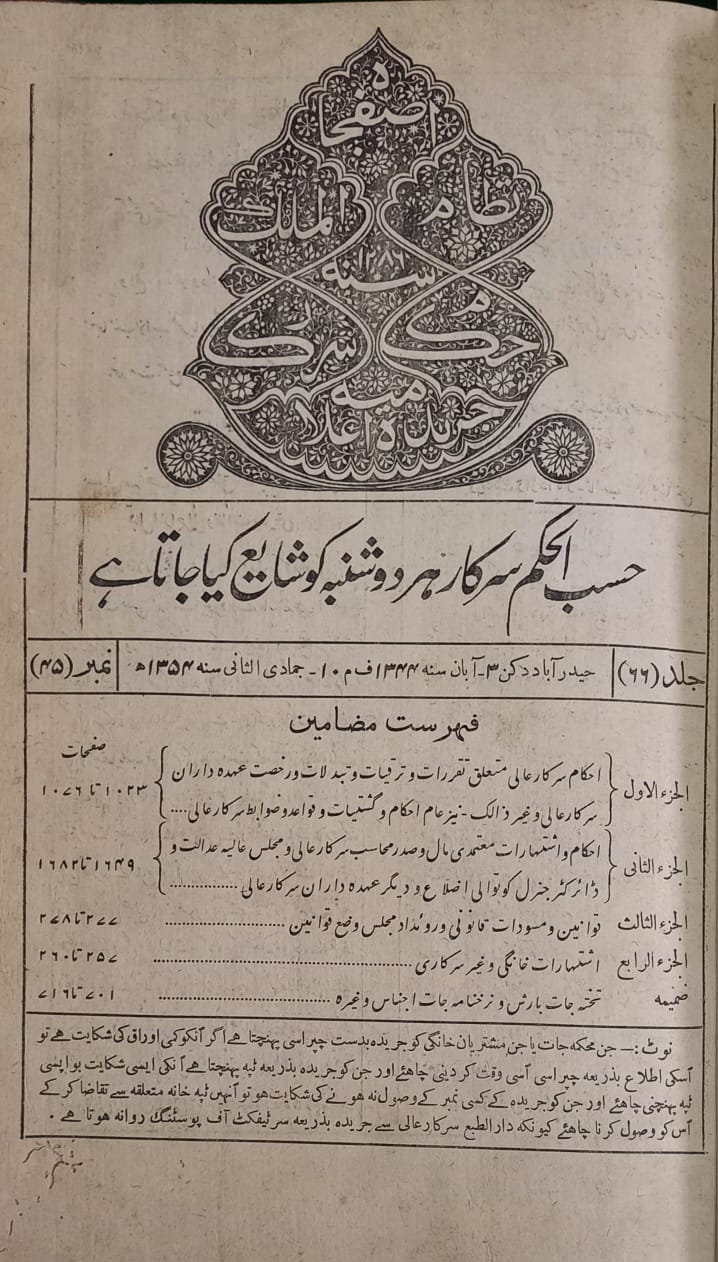 آصفجاہ
نظام الملک
سنہ ۱۲۸۶
محکمہ سرکار
جریدہ اعلامیہ
حسب الحکم سرکار ہر دوشنبہ کو شایع کیا جاتا ہے
جلد (۶۶) حیدرآباد دکن ۳ - آبان سنہ ۱۳۴۴ ف م ۱۰ - جمادی الثانی سنہ ۱۳۵۴ھ نمبر (۴۵)
فہرست مضامین
صفحات
الجزء الاول احکام سرکار عالی متعلق تقررات و ترقیات و تبدلات و رخصت عہدہ داران ۱۰۲۳ تا ۱۰۷۶
سرکار عالی و غیر ذالک - نیز عام احکام و گشتیات و قواعد و ضوابط سرکار عالی ....
الجزء الثانی احکام و اشتہارات معتمدی مال و صدر محاسب سرکار عالی و مجلس عالیہ عدالت و ۱۶۴۹ تا ۱۶۸۲
ڈائرکٹر جنرل کوتوالی اضلاع و دیگر عہدہ داران سرکار عالی ..............
الجزء الثالث قوانین و مسودات قانونی و روئداد مجلس وضع قوانین .......................... ۲۷۷ تا ۲۷۸
الجزء الرابع اشتہارات خانگی و غیر سرکاری .................................................. ۲۵۷ تا ۲۶۰
ضمیمہ تختہ جات بارش و نرخنامہ جات اجناس وغیرہ .............................. ۷۰۱ تا ۷۱۶
نوٹ :— جن محکمہ جات یا جن مشتریان خانگی کو جریدہ بدست چپراسی پہنچتا ہے اگر انکو کمی اوراق کی شکایت ہے تو
اُسکی اطلاع بذریعہ چپراسی اُسی وقت کر دینی چاہئے اور جن کو جریدہ بذریعہ ٹپہ پہنچتا ہے انکی ایسی شکایت بواپسی
ٹپہ پہنچنی چاہئے اور جن کو جریدہ کے کسی نمبر کے وصول نہ ہونے کی شکایت ہو تو انہیں ٹپہ خانہ متعلقہ سے تقاضا کر کے
اُس کو وصول کرنا چاہئے کیونکہ دار الطبع سرکار عالی سے جریدہ بذریعہ سرٹیفکٹ آف پوسٹنگ روانہ ہوتا ہے .